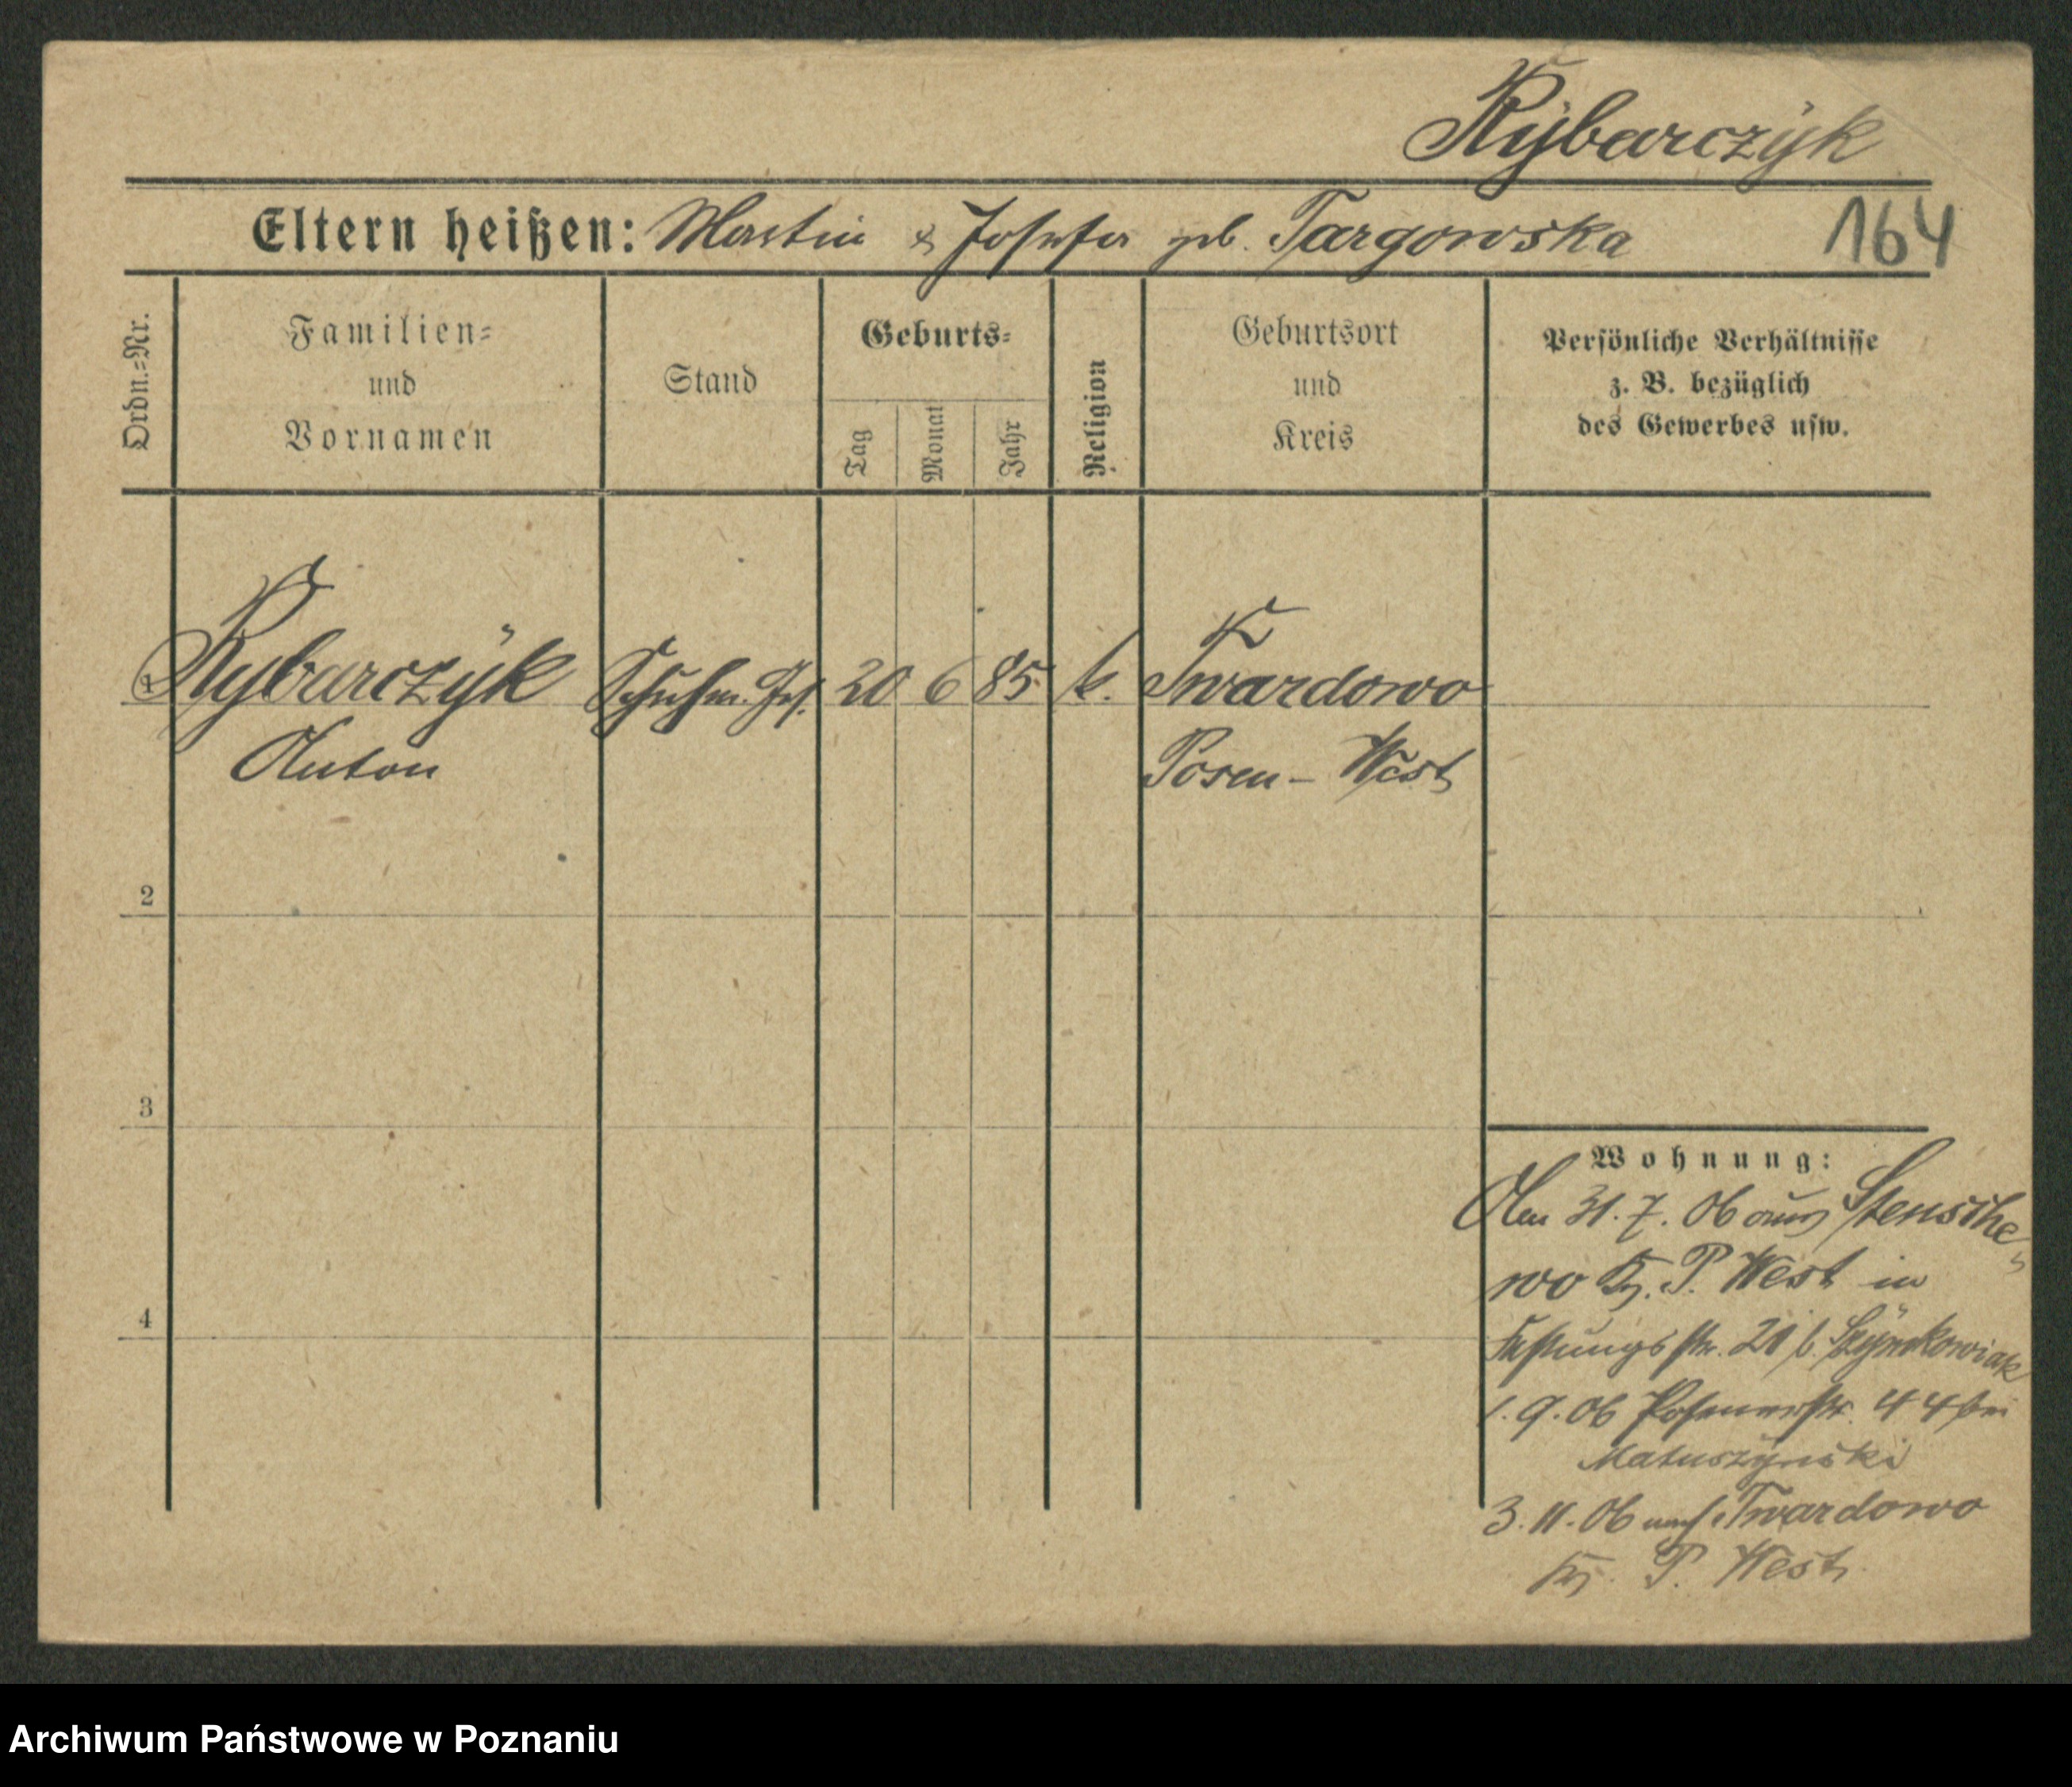 Rÿbarczÿk
Eltern heißen: Martin & Josefa geb. Targowska
164
Ordn.-Nr.
Familien- und Vornamen
Stand
Geburts-
Tag
Monat
Jahr
Religion
Geburtsort und Kreis
Persönliche Verhältnisse
z. B. bezüglich
des Gewerbes usw.
1 Rybarczÿk Schuhm. Ges. 20 6 85 k. Twardowo
Anton Posen - West
2
3
4
Wohnung:
Am 31. 7. 06 aus Stensche-
wo Kr. P. West in
Festungsstr. 21 b. Szÿmkowiak
1. 9. 06 Posenerstr. 44 bei
Matuszÿnski
3. 11. 06 nach Twardowo
Kr. P. West
Archiwum Państwowe w Poznaniu